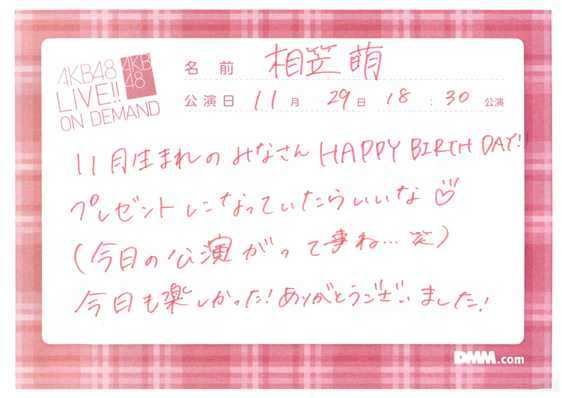 AKB48
LIVE!!
ON DEMAND
AKB
48
名 前 相笠 萌
公演日 11 月 29 日 18 : 30 公演
11月生まれのみなさん HAPPY BIRTH DAY!!
プレゼントになっていたらいいな♡
(今日の公演がって事ね… 笑)
今日も楽しかった!ありがとうございました!
DMM.com